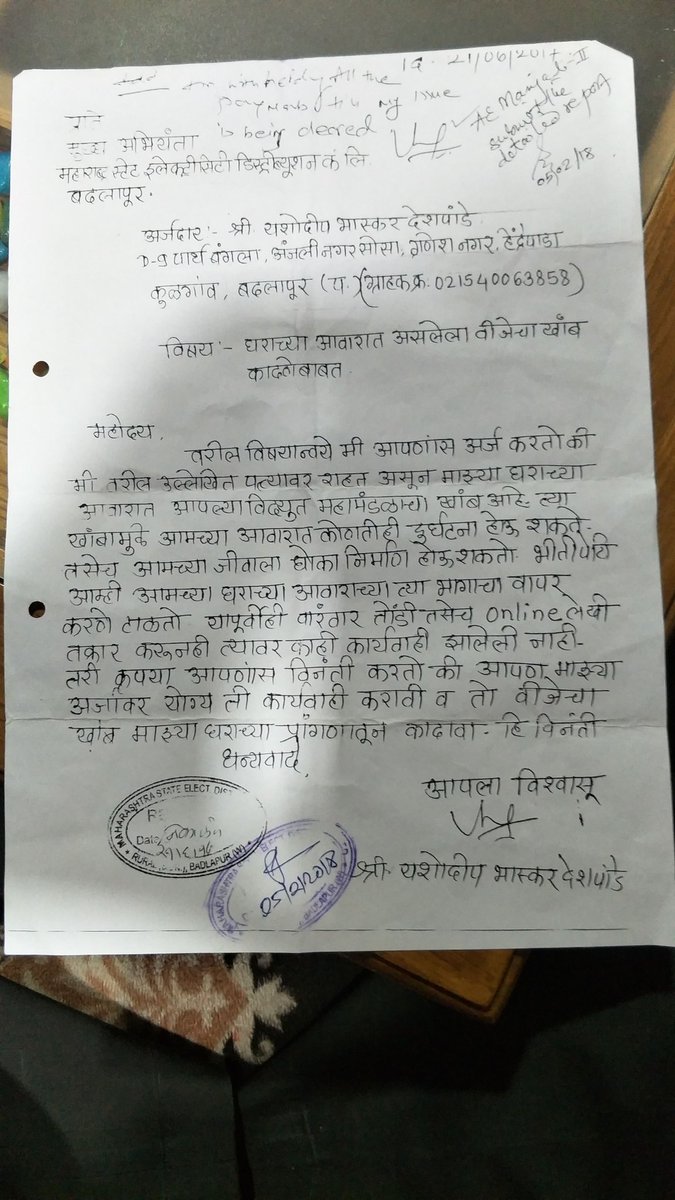 I am withholding all the 21/06/2017
payments till my issue
is being cleared
AE Manjarli-II
submit the
detailed report
05/02/18
प्रति
मुख्य अभियंता
महाराष्ट्र स्टेट इलेक्ट्रीसिटी डिस्ट्रीब्युशन कं लि.
बदलापूर.
अर्जदार :- श्री. यशोदीप भास्कर देशपांडे
D-9 पार्थ बंगला, अंजली नगर सोसा, गणेश नगर, हेंद्रेपाडा
कुळगांव, बदलापूर (प.) (ग्राहक क्र. 021540063858)
विषय :- घराच्या आवारात असलेला वीजेचा खांब
काढणेबाबत.
महोदय,
वरील विषयान्वये मी आपणांस अर्ज करतो की
मी वरील उल्लेखित पत्त्यावर राहत असून माझ्या घराच्या
आवारात आपल्या विद्युत महामंडळाचा खांब आहे. त्या
खांबामुळे आमच्या आवारात कोणतीही दुर्घटना होऊ शकते.
तसेच आमच्या जीवाला धोका निर्माण होऊ शकतो. भीतीपोटी
आम्ही आमच्या घराच्या आवाराच्या त्या भागाचा वापर
करणे टाळतो. यापूर्वीही वारंवार तोंडी तसेच online लेखी
तक्रार करूनही त्यावर काही कार्यवाही झालेली नाही.
तरी कृपया आपणांस विनंती करतो की आपण माझ्या
अर्जावर योग्य ती कार्यवाही करावी व तो वीजेचा
खांब माझ्या घराच्या प्रांगणातून काढावा. हि विनंती
धन्यवाद,
आपला विश्वासू
श्री. यशोदीप भास्कर देशपांडे
MAHARASHTRA STATE ELECT. DIST
Date
BADLAPUR (W)
05/2/2018
BADLAPUR (W)